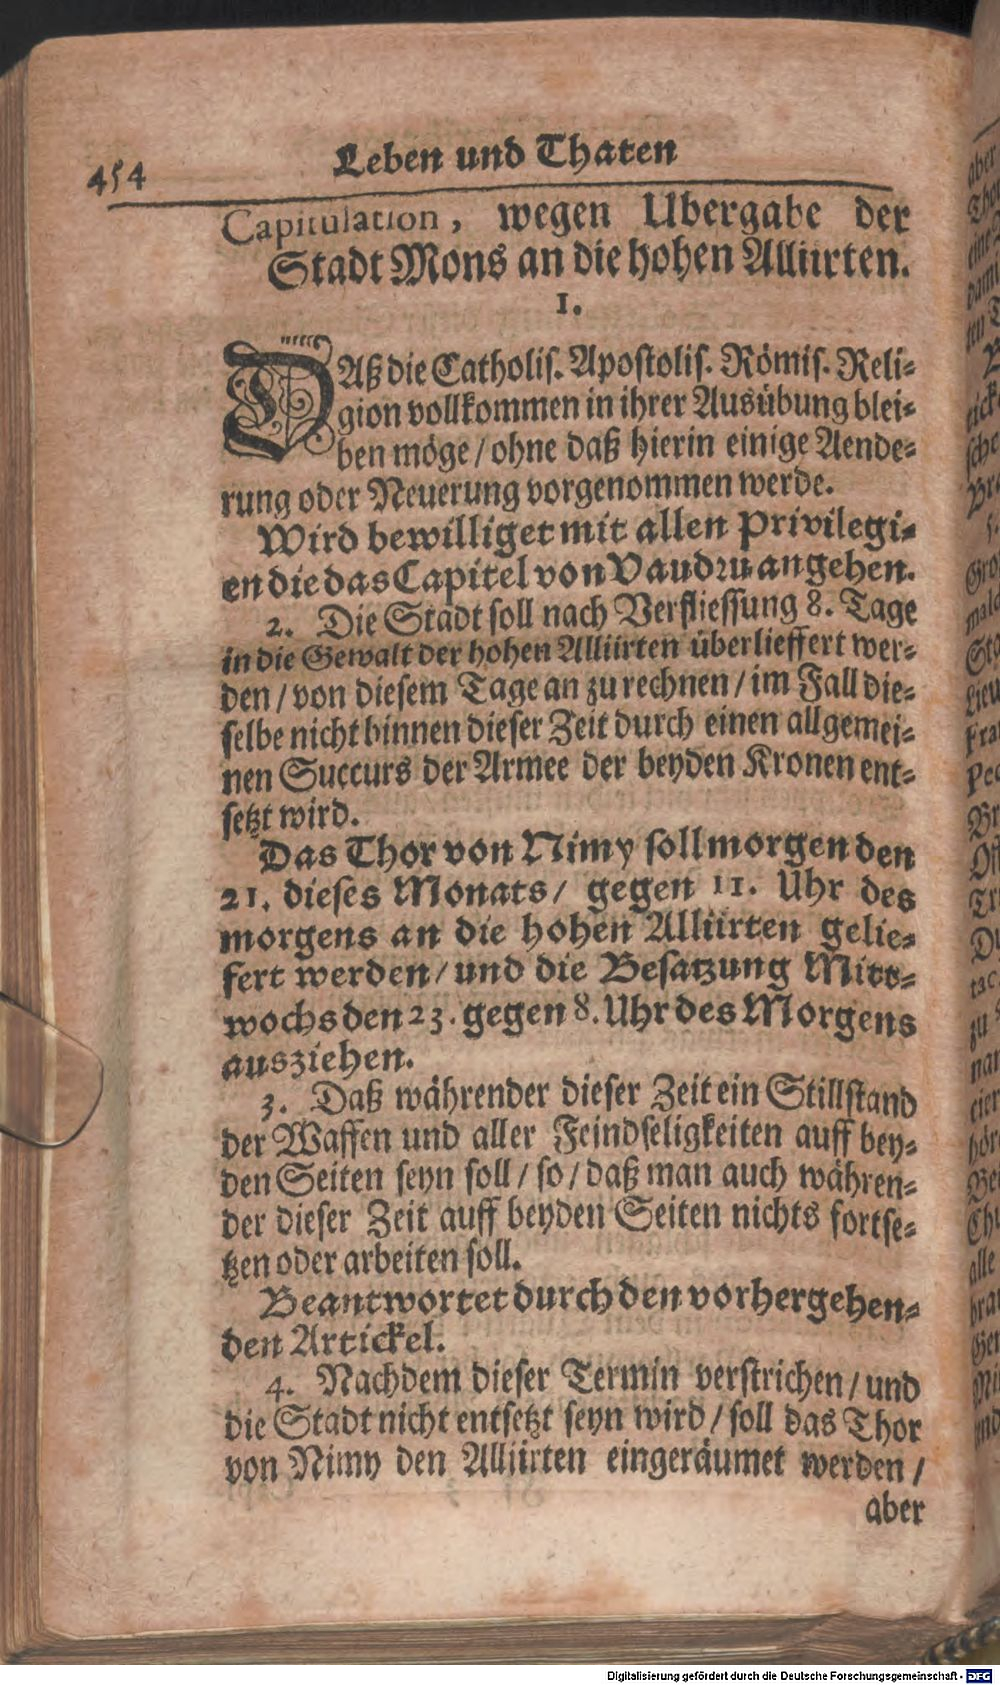 454
Leben und Thaten
Capitulation, wegen Ubergabe der
Stadt Mons an die hohen Alliirten.
1.
DAß die Catholis. Apostolis. Römis. Reli-
gion vollkommen in ihrer Ausübung blei-
ben möge / ohne daß hierin einige Aende-
rung oder Neuerung vorgenommen werde.
Wird bewilliget mit allen Privilegi-
en die das Capitel von Vaudru angehen.
2. Die Stadt soll nach Verfliessung 8. Tage
in die Gewalt der hohen Alliirten überlieffert wer-
den / von diesem Tage an zu rechnen / im Fall die-
selbe nicht binnen dieser Zeit durch einen allgemei-
nen Succurs der Armee der beyden Kronen ent-
setzt wird.
Das Thor von Nimy soll morgen den
21. dieses Monats / gegen 11. Uhr des
morgens an die hohen Alliirten gelie-
fert werden / und die Besatzung Mitt-
wochs den 23. gegen 8. Uhr des Morgens
ausziehen.
3. Daß währender dieser Zeit ein Stillstand
der Waffen und aller Feindseligkeiten auff bey-
den Seiten seyn soll / so / daß man auch währen-
der dieser Zeit auff beyden Seiten nichts fortse-
tzen oder arbeiten soll.
Beantwortet durch den vorhergehen-
den Artickel.
4. Nachdem dieser Termin verstrichen / und
die Stadt nicht entsetzt seyn wird / soll das Thor
von Nimy den Alliirten eingeräumet werden /
aber
Digitalisierung gefördert durch die Deutsche Forschungsgemeinschaft - DFG